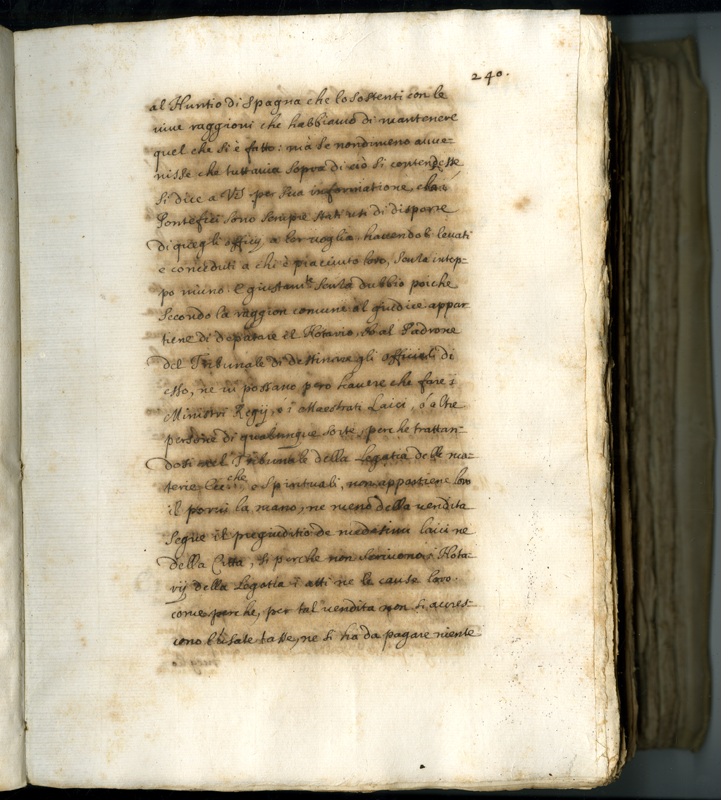 240.
al Nuntio di Spagna che lo sostenti con le
vive raggioni che habbiamo di mantenere
quel che si è fatto: mà se nondimeno avve-
nisse che tuttavia sopra di ciò si contendesse
si dice a VS per sua informatione che i
Pontefici sono sempre stati usi di disporre
di quegli officij a lor voglia havendoli levati
e conceduti a chi è piacciuto loro, senza intop-
po niuno. E giustamte senza dubbio poiche
secondo la raggion comune al giudice appar
tiene di deputare il Notario, ò al Padrone
del Tribunale di destinare gli officiali di
esso, ne vi possano pero havere che fare i
Ministri Regij, ò i Maestrati Laici, ò altre
persone di qualunque sorte, perche trattan-
dosi nel Tribunale della Legatia delle ma-
terie Eccche e Spirituali, non appartiene loro
il porvi la mano, ne meno della vendita
segue il pregiuditio de medesimi laici ne
della Citta, si perche non scrivono i Nota-
rij della Legatia i atti ne le cause loro.
come perche, per tal vendita non si accres-
cono l'usate tasse, ne si ha da pagare niente